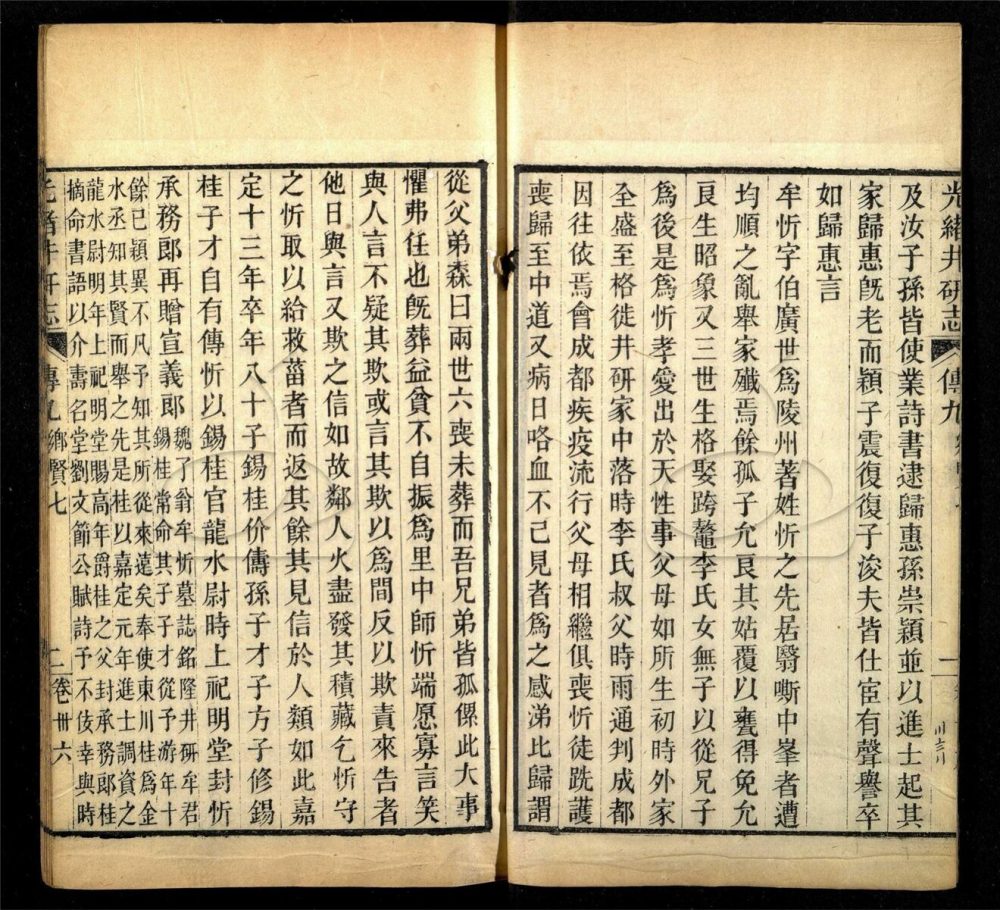 光緒井研志 傳九
及汝子孫皆使業詩書逮歸惠孫崇穎並以進士起其
家歸惠旣老而穎子震復復子浚夫皆仕宦有聲譽卒
如歸惠言
牟忻字伯廣世爲陵州著姓忻之先居翳嘶中峯者遭
均順之亂舉家殲焉餘孤子允艮其姑覆以甕得免允
艮生昭象又三世生格娶跨鼇李氏女無子以從兄子
爲後是爲忻孝愛出於天性事父母如所生初時外家
全盛至格徙井研家中落時李氏叔父時雨通判成都
因往依焉會成都疾疫流行父母相繼俱喪忻徒跣護
喪歸至中道又病日咯血不已見者爲之感涕比歸謂
從父弟森曰兩世六喪未葬而吾兄弟皆孤傫此大事
懼弗任也旣葬益貧不自振爲里中師忻端愿寡言笑
與人言不疑其欺或言其欺以爲間反以欺責來告者
他日與言又欺之信如故鄰人火盡發其積藏乞忻守
之忻取以給救菑者而返其餘其見信於人類如此嘉
定十三年卒年八十子錫桂价儔孫子才子方子修錫
桂子才自有傳忻以錫桂官龍水尉時上祀明堂封忻
承務郎再贈宣義郎魏了翁牟忻墓誌銘隆井研牟君
錫桂常命其子子才從予游年十
餘已穎異不凡予知其所從來蓮矣奉使東川桂爲金
水丞知其賢而舉之先是桂以嘉定元年進士調資之
龍水尉明年上祀明堂賜高年爵桂之父封承務郎桂
摘命書語以介壽名堂劉文節公賦詩予不伎幸與時
光緒井研志 傳九 鄉賢七 二 卷卅六